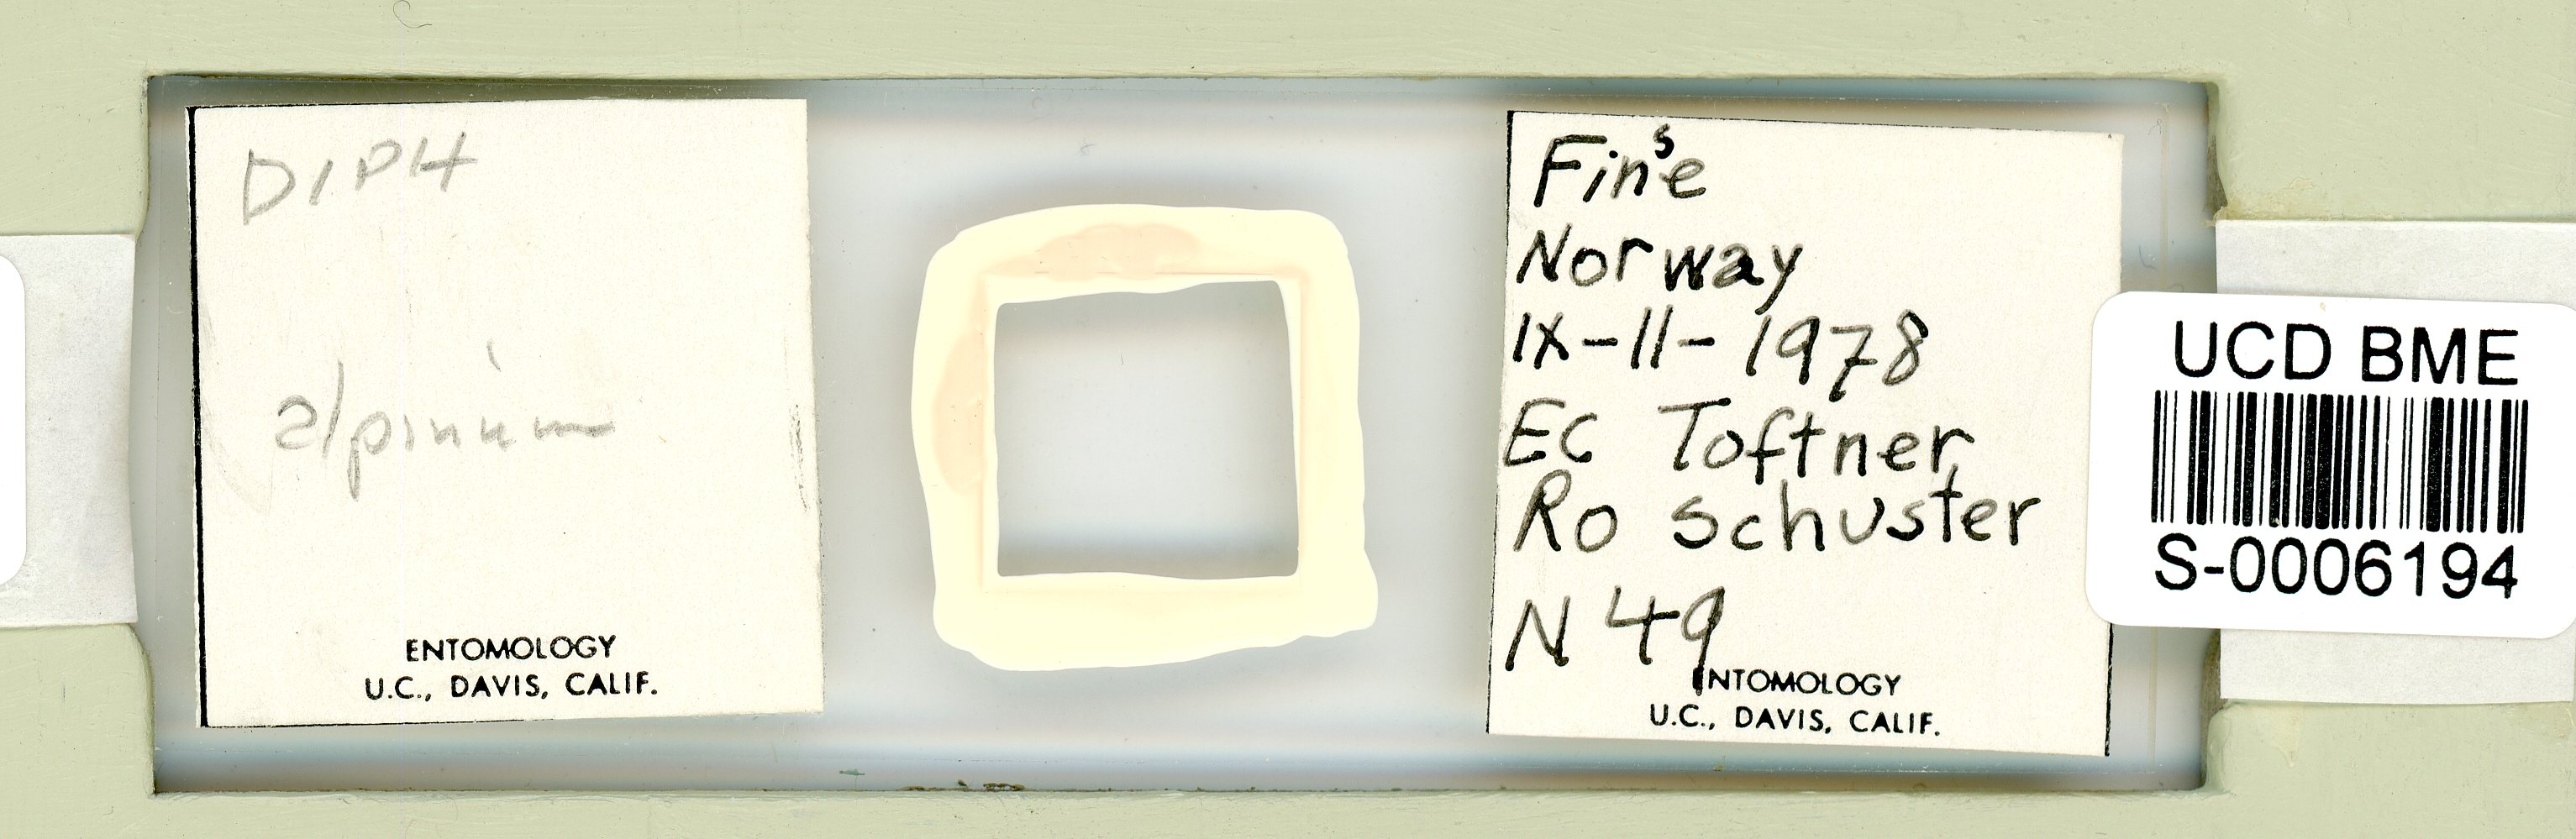 DIPH
alpinum
ENTOMOLOGY
U.C., DAVIS, CALIF.
Finse
Norway
IX-11-1978
EC Toftner,
RO Schuster
N 49
ENTOMOLOGY
U.C., DAVIS, CALIF.
UCD BME
S-0006194